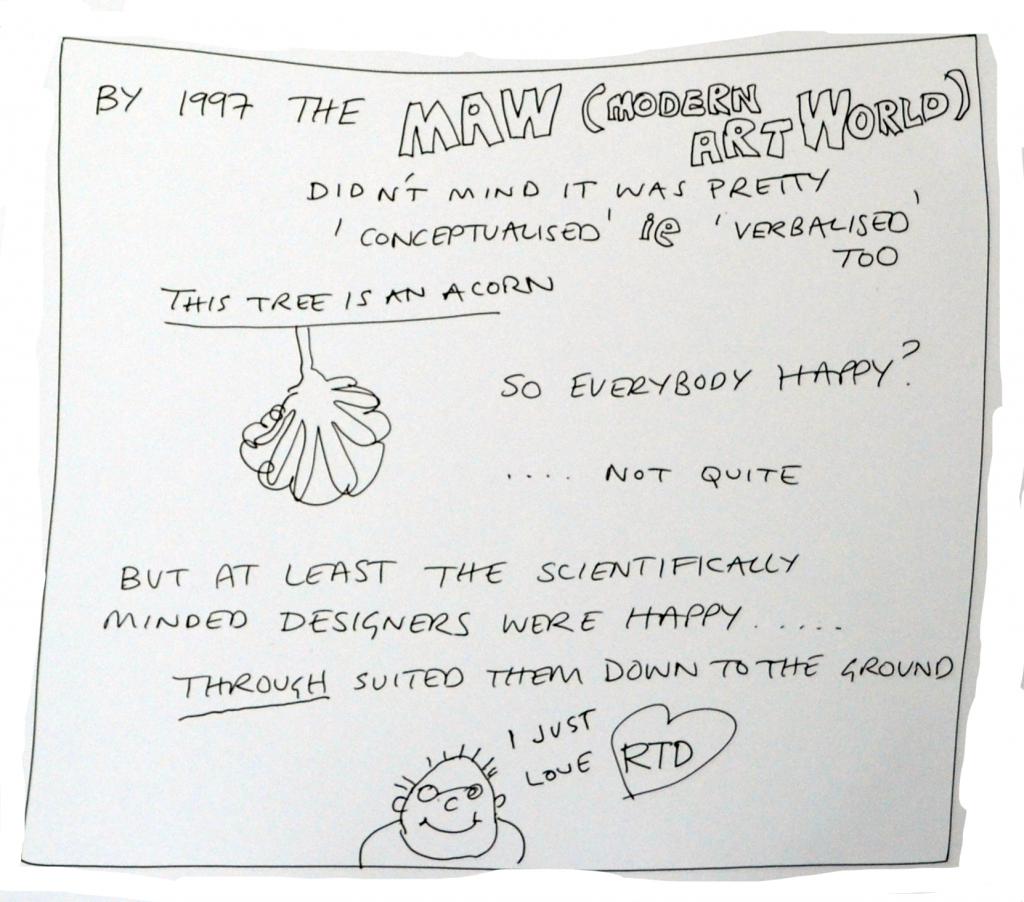 BY 1997 THE MAW (MODERN ART WORLD)
DIDN'T MIND IT WAS PRETTY
'CONCEPTUALISED' ie 'VERBALISED'
TOO
THIS TREE IS AN ACORN
SO EVERYBODY HAPPY?
.... NOT QUITE
BUT AT LEAST THE SCIENTIFICALLY
MINDED DESIGNERS WERE HAPPY.....
THROUGH SUITED THEM DOWN TO THE GROUND
I JUST
LOVE RTD